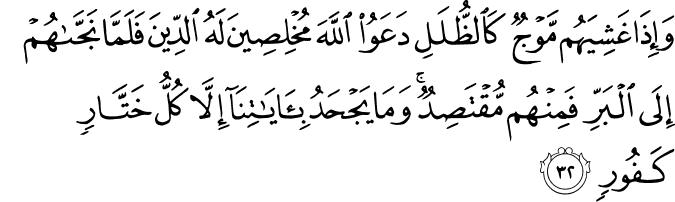 وَإِذَا غَشِيَهُم مَّوۡجٞ كَٱلظُّلَلِ دَعَوُاْ ٱللَّهَ مُخۡلِصِينَ لَهُ ٱلدِّينَ فَلَمَّا نَجَّىٰهُمۡ
إِلَى ٱلۡبَرِّ فَمِنۡهُم مُّقۡتَصِدٞۚ وَمَا يَجۡحَدُ بِـَٔايَٰتِنَآ إِلَّا كُلُّ خَتَّارٖ
كَفُورٖ ٣٢